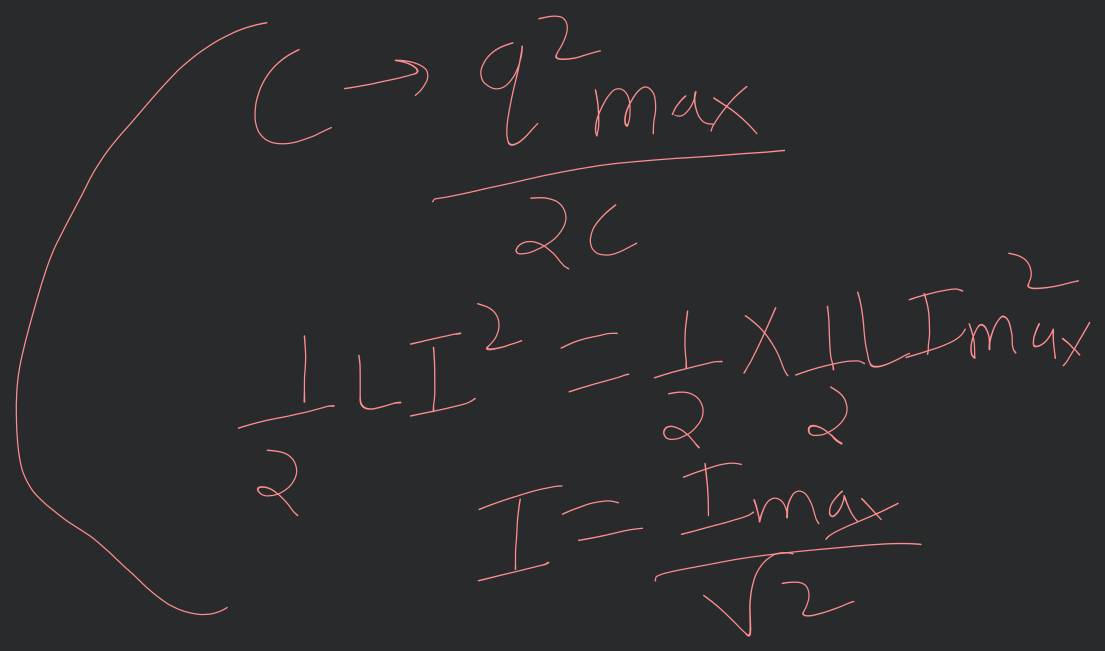 C → q²max / 2C
1/2 LI² = 1/2 × 1/2 LI²max
I = Imax / √2